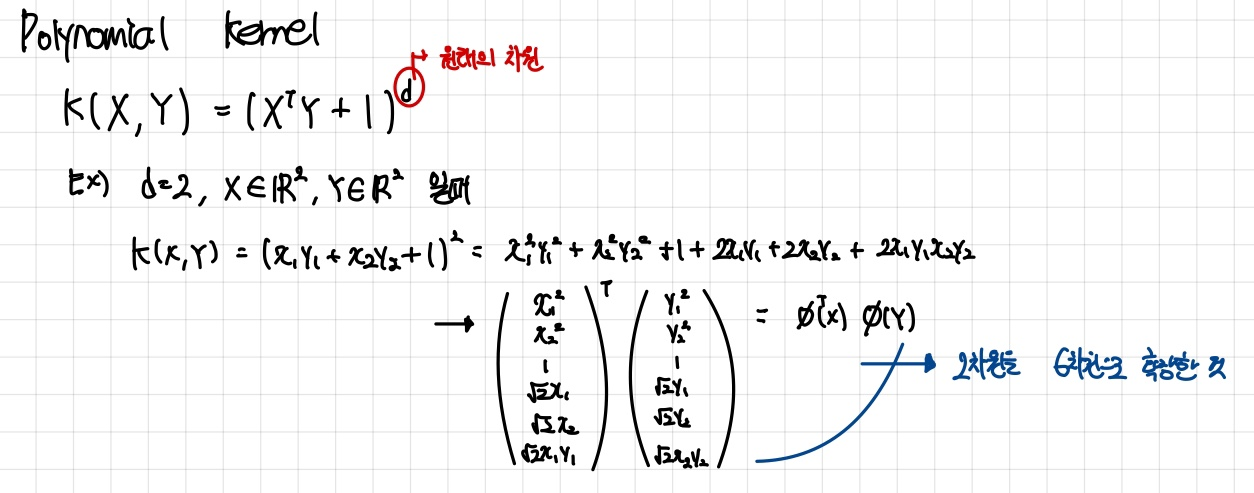 Polynomial kernel
→ 원래의 차원
K(X, Y) = (XᵀY + 1)ᵈ
Ex) d=2, X∈ℝ², Y∈ℝ² 일때
K(X,Y) = (x₁y₁ + x₂y₂ + 1)² = x₁²y₁² + x₂²y₂² + 1 + 2x₁y₁ + 2x₂y₂ + 2x₁y₁x₂y₂
→ (x₁² x₂² 1 √2x₁ √2x₂ √2x₁y₁)ᵀ (y₁² y₂² 1 √2y₁ √2y₂ √2x₂y₂) = φᵀ(x) φ(Y)
→ 2차원을 6차원으로 확장한 것